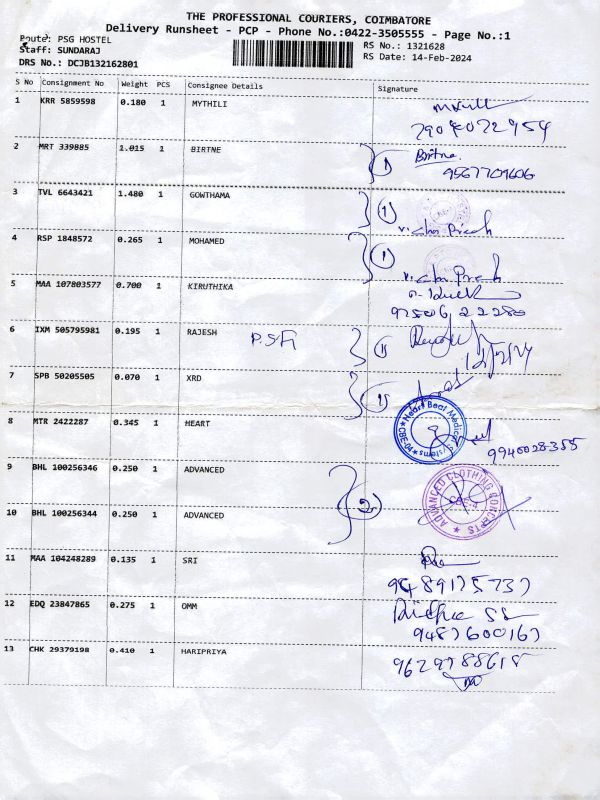 THE PROFESSIONAL COURIERS, COIMBATORE
Delivery Runsheet - PCP - Phone No.:0422-3505555 - Page No.:1
Route: PSG HOSTEL
Staff: SUNDARAJ
DRS No.: DCJB132162801
RS No.: 1321628
RS Date: 14-Feb-2024
S No Consignment No Weight PCS Consignee Details Signature
1 KRR 5859598 0.180 1 MYTHILI
2 MRT 339885 1.015 1 BIRTNE 1 Birtne
3 TVL 6643421 1.480 1 GOWTHAMA 1
4 RSP 1848572 0.265 1 MOHAMED 1
5 MAA 107803577 0.700 1 KIRUTHIKA
6 IXM 505795981 0.195 1 RAJESH P.S.G
7 SPB 50205505 0.070 1 XRD
8 MTR 2422287 0.345 1 HEART Heart Beat Medical Systems
9940028355
9 BHL 100256346 0.250 1 ADVANCED 2 ADVANCED CLOTHING CONCEPTS
10 BHL 100256344 0.250 1 ADVANCED
11 MAA 104248289 0.135 1 SRI
9489175737
12 EDQ 23847865 0.275 1 OMM
9487600167
13 CHK 29379198 0.410 1 HARIPRIYA